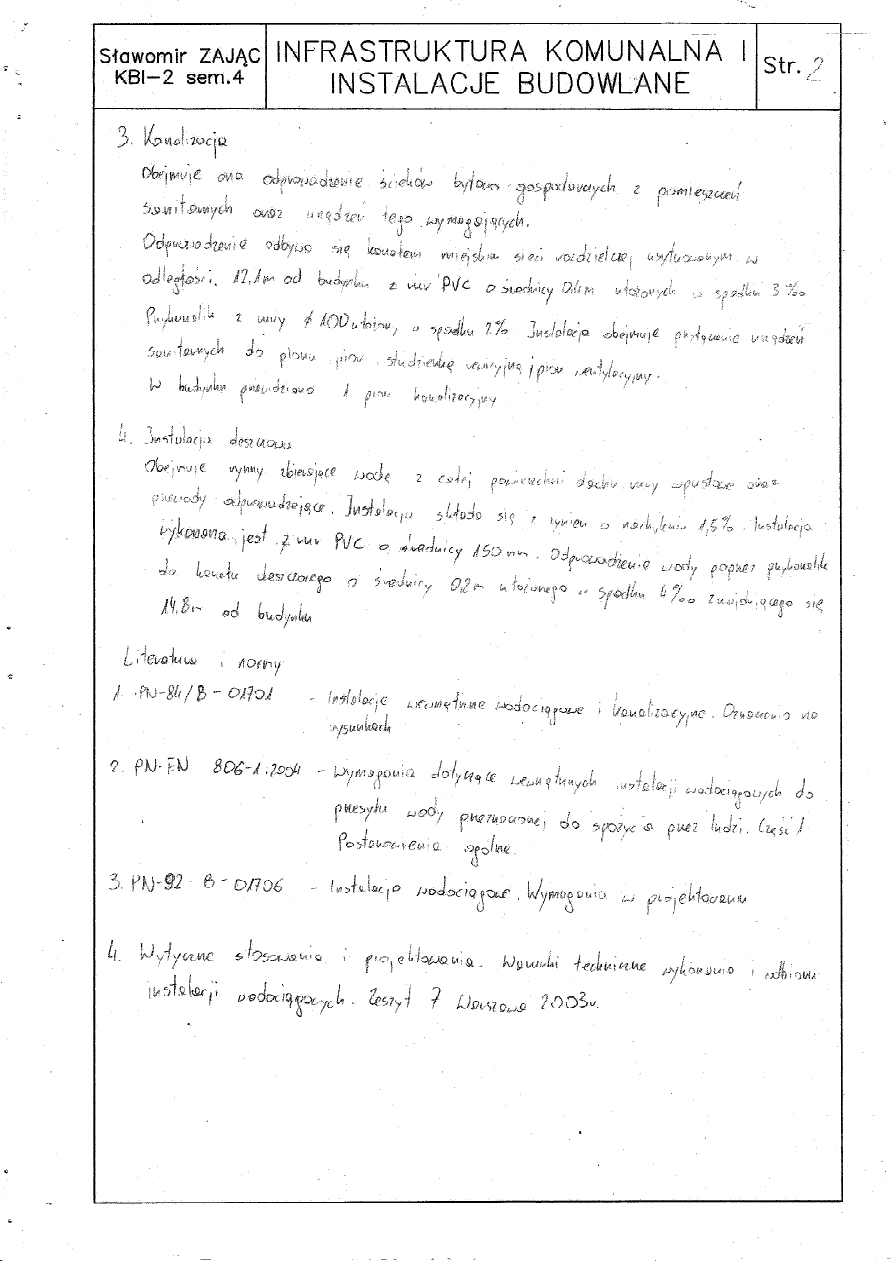 Sławomir ZAJĄC
KBI-2 sem.4
INFRASTRUKTURA KOMUNALNA I
INSTALACJE BUDOWLANE
Str. 2
3. Kanalizacja
Obejmuje ona odprowadzenie ścieków bytowo gospodarczych z pomieszczeń
sanitarnych oraz urządzeń tego wymagających.
Odprowadzenie odbywa się kanałem miejskim sieci rozdzielczej usytuowanym w
odległości 12,1m od budynku z rur PVC o średnicy 0,4m ułożonych w spadku 3‰
Przykanalik z rury ø 100 ułożony w spadku 2% Instalacja obejmuje przyłączenie urządzeń
sanitarnych do pionu, pion, studzienkę rewizyjną i pion wentylacyjny.
W budynku przewidziano 1 pion kanalizacyjny
4. Instalacja deszczowa
Obejmuje rynny zbierające wodę z całej powierzchni dachu rury spustowe oraz
przewody odprowadzające. Instalacja składa się z rynien o nachyleniu 1,5% Instalacja
wykonana jest z rur PVC o średnicy 150mm. Odprowadzenie wody poprzez przykanalik
do kanału deszczowego o średnicy 0,2m ułożonego w spadku 4‰ znajdującego się
14,8m od budynku
Literatura i normy
1. PN-84/B-01701 - Instalacje wewnętrzne wodociągowe i kanalizacyjne. Oznaczenia na
rysunkach
2. PN-EN 806-1:2004 - Wymagania dotyczące wewnętrznych instalacji wodociągowych do
przesyłu wody przeznaczonej do spożycia przez ludzi. Część 1
Postanowienia ogólne.
3. PN-92 B-01706 - Instalacje wodociągowe. Wymagania w projektowaniu
4. Wytyczne stosowania i projektowania. Warunki techniczne wykonania i odbioru
instalacji wodociągowych. Zeszyt 7 Warszawa 2003r.